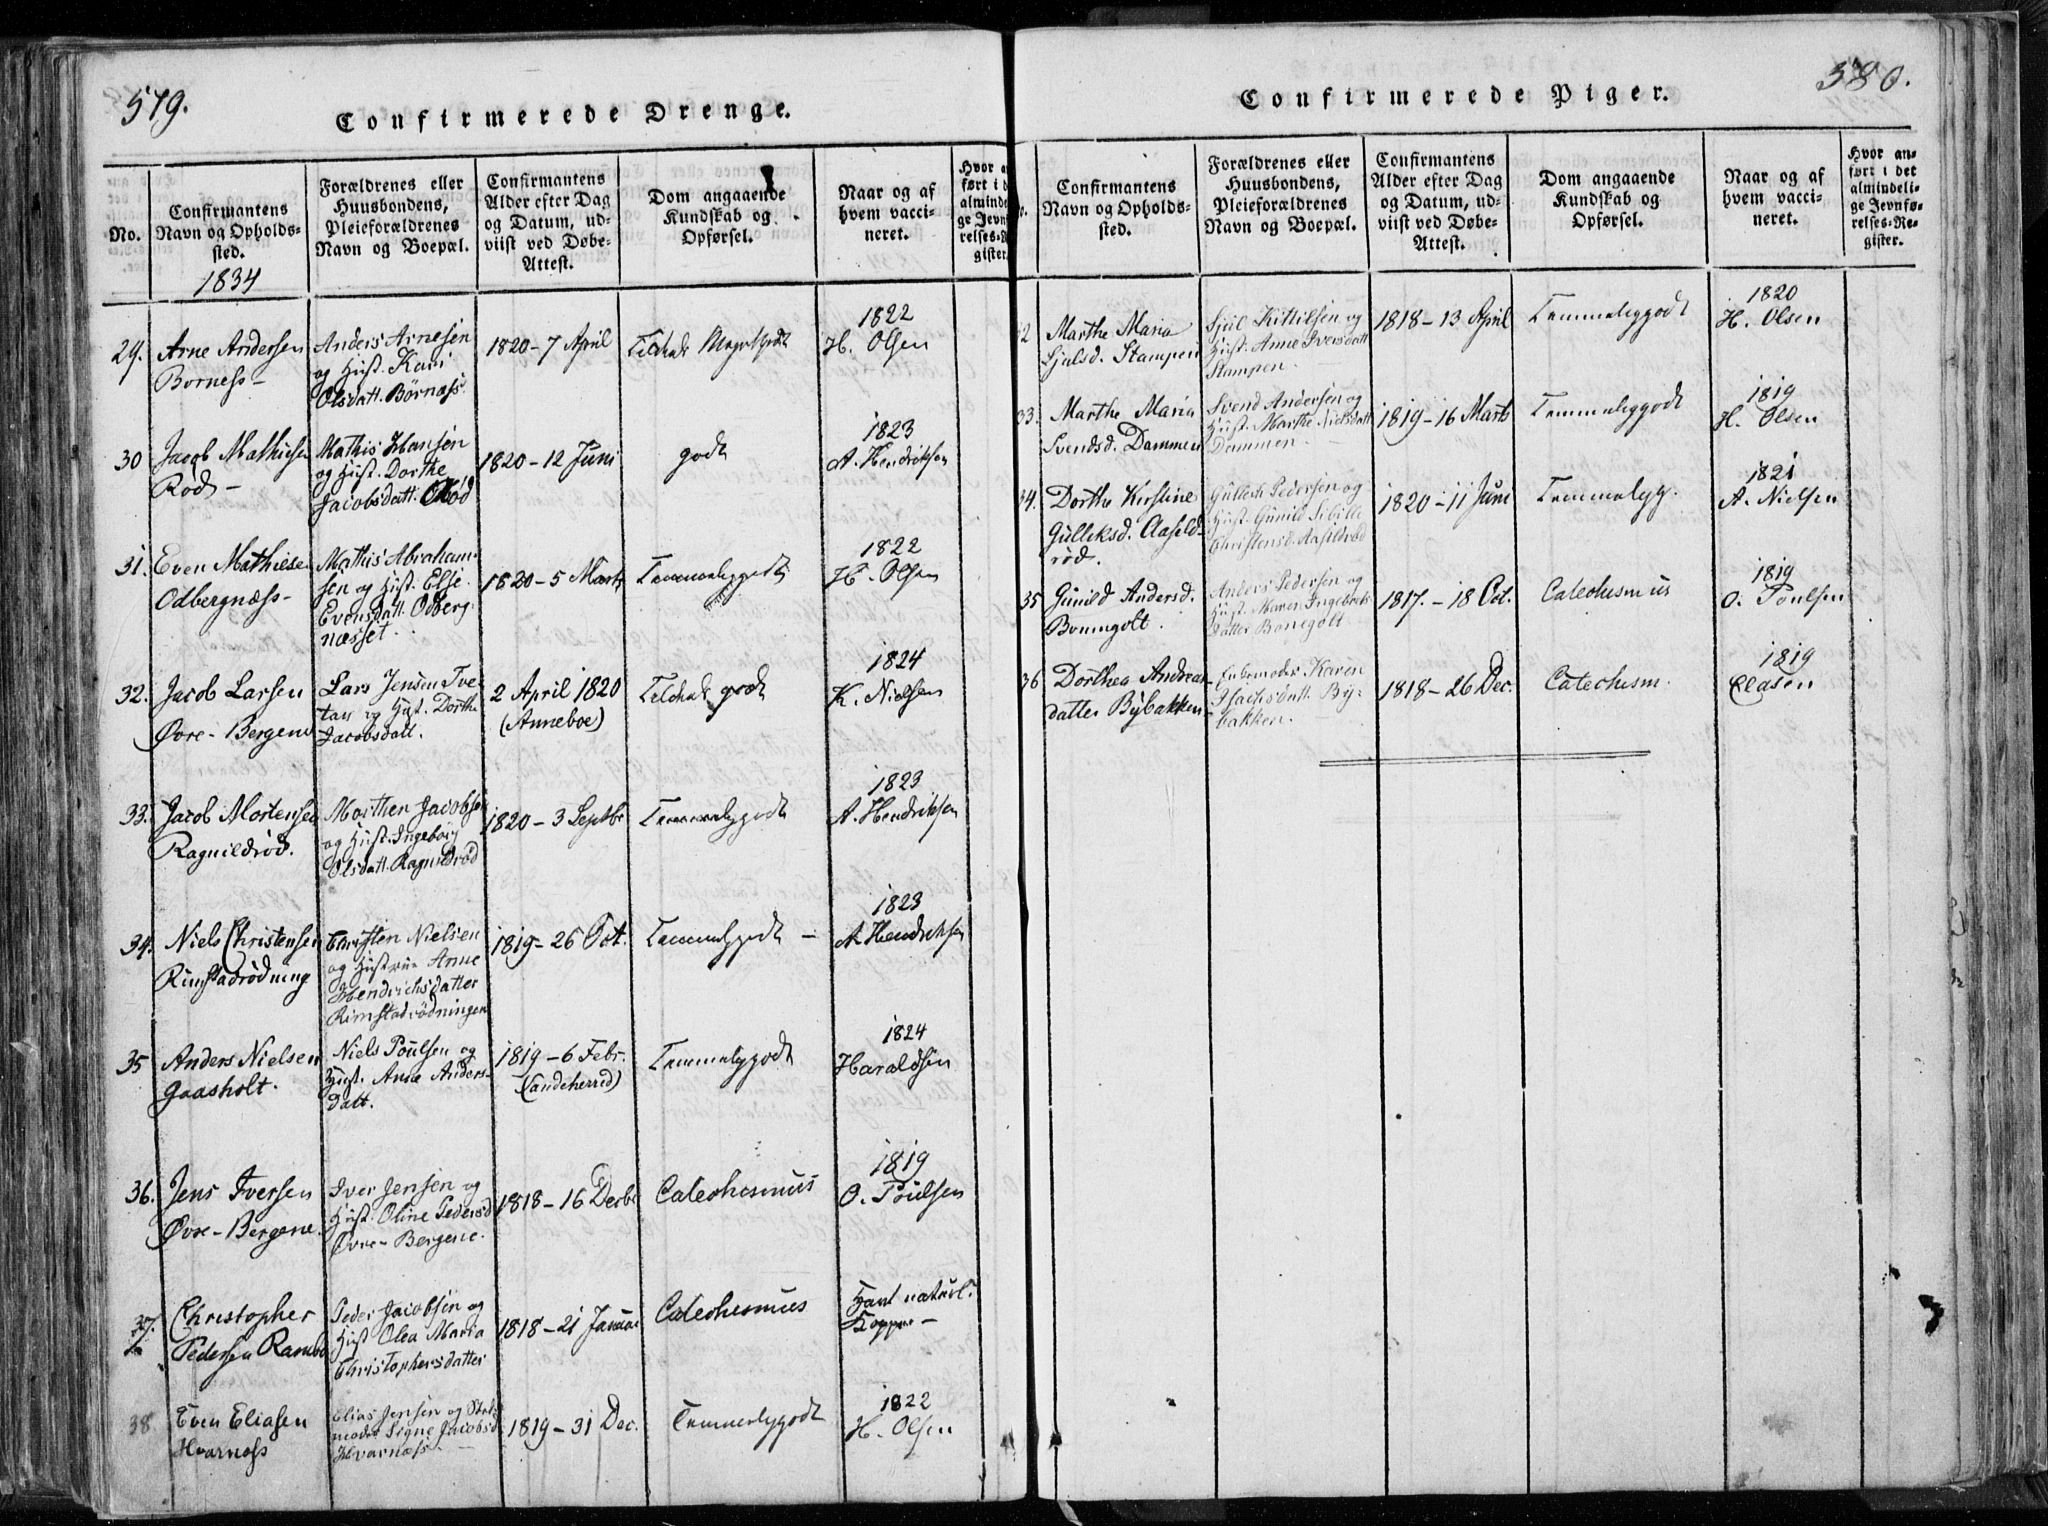 579.
Confirmerede Drenge.
No.
Confirmantens
Navn og Opholds-
sted.
1834
Forældrenes eller
Huusbondens,
Pleieforældrenes
Navn og Boepæl.
Confirmantens
Alder efter Dag
og Datum, ud-
viist ved Døbe-
Attest.
Dom angaaende
Kundskab og
Opførsel.
Naar og af
hvem vacci-
neret.
29.
Arne Andersen
Borness-
Anders Arnesen
og Hust. Kari
Olsdatt. Børnæss.
1820-7 April
1822
H. Olsen
30
Jacob Mathiesen
Rød-
Mathis Hansen
og Hust. Dorthe
Jacobsdatt. Rød
1820-12 Juni
godt
1823
A. Hendriksen
31.
Even Mathiesen
Odbergnæss-
Mathis Abraham-
sen og Hust. Else
Evensdatt. Odberg-
næsset.
1820-5 Marts
Temmeliggodt
1822
H. Olsen
32.
Jacob Larsen
Øvre-Bergene
Lars Jensen Tve-
tan og Hust. Dorthe
Jacobsdatt.
2 April 1820
(Anneboe)
godt
1824
K. Nielsen
33.
Jacob Mortensen
Ragnildrød.
Morthen Jacobsen
og Hust. Ingeborg
Olsdatt. Ragnildrød
1820-3 Septbr
Temmeliggodt
1823
A. Hendriksen
34.
Niels Christensen
Rimstadrødning
Christen Nielsen
og Hustrue Anne
Hendrichsdatter
Rimstadrødningen
1819-26 Oct.
Temmeliggodt -
1823
A. Hendriksen
35
Anders Nielsen
Gaasholt.
Niels Poulsen og
Hust. Anne Anders-
datt.
1819-6 Febr.
(Sandeherred)
Temmeliggodt
1824
Haraldsen
36.
Jens Iversen
Øvre-Bergene.
Iver Jensen og
Hust. Oline Pedersd
Øvre-Bergene.
1818-16 Decbr
Catechismus
1819
O. Poulsen
37.
Christopher
Pedersen Ramboe
Peder Jacobsen og
Hust Olea Maria
Christophersdatter
1818-21 Januar
Catechismus
Havt naturl.
Kopper-
38.
Even Eliasen
Hvarness
Elias Jensen og Stif-
moder Signe Jacobsd
Hvarnæss.
1819-31 Dec.
Temmeliggodt
1822
H. Olsen
580.
Confirmerede Piger.
Confirmantens
Navn og Opholds-
sted.
Forældrenes eller
Huusbondens,
Pleieforældrenes
Navn og Boepæl.
Confirmantens
Alder efter Dag
og Datum, ud-
viist ved Døbe-
Attest.
Dom angaaende
Kundskab og
Opførsel.
Naar og af
hvem vacci-
neret.
Hvor an-
ført i det
almindeli-
ge Jevnfø-
relses-Re-
gister.
Marthe Maria
Sjulsd. Stampen
Sjul Kittilsen og
Hust. Anne Iversdatt
Stampen.
1818-13 April
Temmeliggodt
1820
H. Olsen
33.
Marthe Maria
Svendsd. Dammen
Svend Andersen og
Hust. Marthe Nielsdatt
Dammen-
1819-16 Marts
Temmeliggodt
1819
H. Olsen
34.
Dorthe Kirstine
Gulleksd. Aaseld-
rød.
Gullech Pedersen og
Hust. Gunild Sibille
Christensd. Aaseldrød
1820-11 Juni
Temmeligg.
1821
A. Nielsen
35
Gunild Andersd.
Bonngolt.
Anders Pedersen og
Hust. Maren Ingebrets-
datter Bonegolt
1817.-18 Oct.
Catechismus
1819
O. Poulsen
36
Dorthea Andreas-
datter Bybakken
Enkemoder Karen
Isachsdatt. By-
bakken.
1818-26 Dec.
Catechism.
1819
Clasen